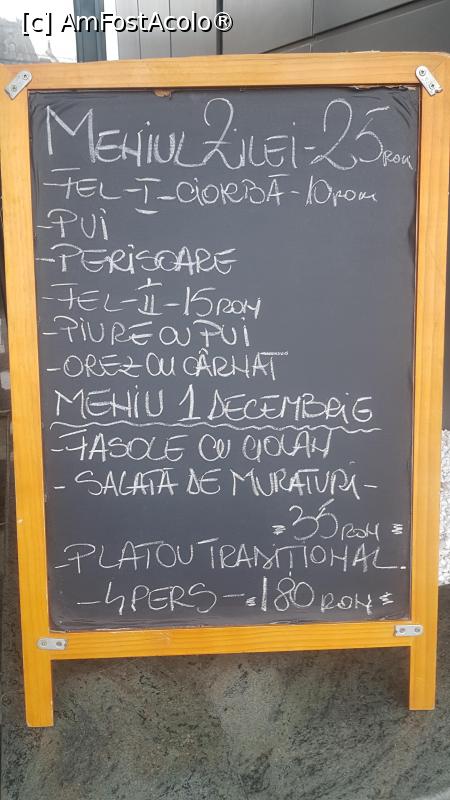 [c] AmFostAcolo®
MENIUL ZILEI - 25 RON
- FEL - I - CIORBĂ - 10 RON
- PUI
- PERISOARE
- FEL - II - 15 RON
- PIURE CU PUI
- OREZ CU CÂRNAT
MENIU 1 DECEMBRIE
- FASOLE CU CIOLAN
- SALATA DE MURATURI -
= 35 RON =
- PLATOU TRADITIONAL.
- 4 PERS - 180 RON